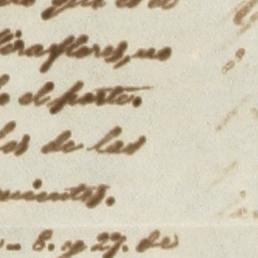 que es el
Miraflores, no
el parte.
los de las
mientos.
8. y 27. de